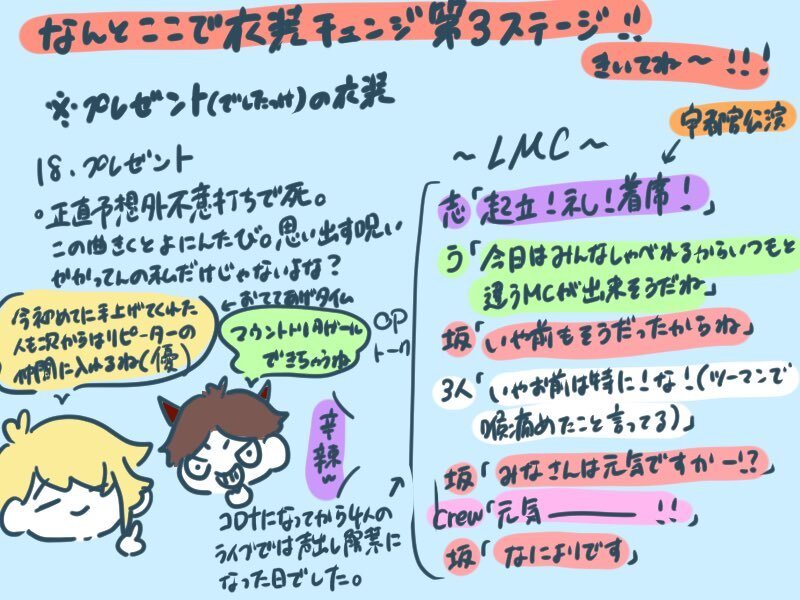 なんとここで衣装チェンジ第3ステージ!!
きいてね〜!!!
※プレゼント(でしたっけ)の衣装
18.プレゼント
。正直予想外不意打ちで死。
この曲きくとよにんたび。思い出す呪い
がかってんの私だけじゃないよな?
←おててあげタイム
今初めてに手上げてくれた
人も次からはリピーターの
仲間に入れるね(優)
マウントトリタガールが
できちゃうね
辛辣w
コロナになってから4人の
ライブでは声出し解禁に
なった日でした。
OP
トーク
〜LMC〜
宇都宮公演
志「起立!礼!着席!」
う「今日はみんなしゃべれるからいつもと
違うMCが出来そうだね」
坂「いや前もそうだったからね」
3人「いやお前は特に!な!(ツーマンで
喉痛めたこと言ってる)」
坂「みなさんは元気ですかー!?」
crew「元気ーーー!!」
坂「なによりです」